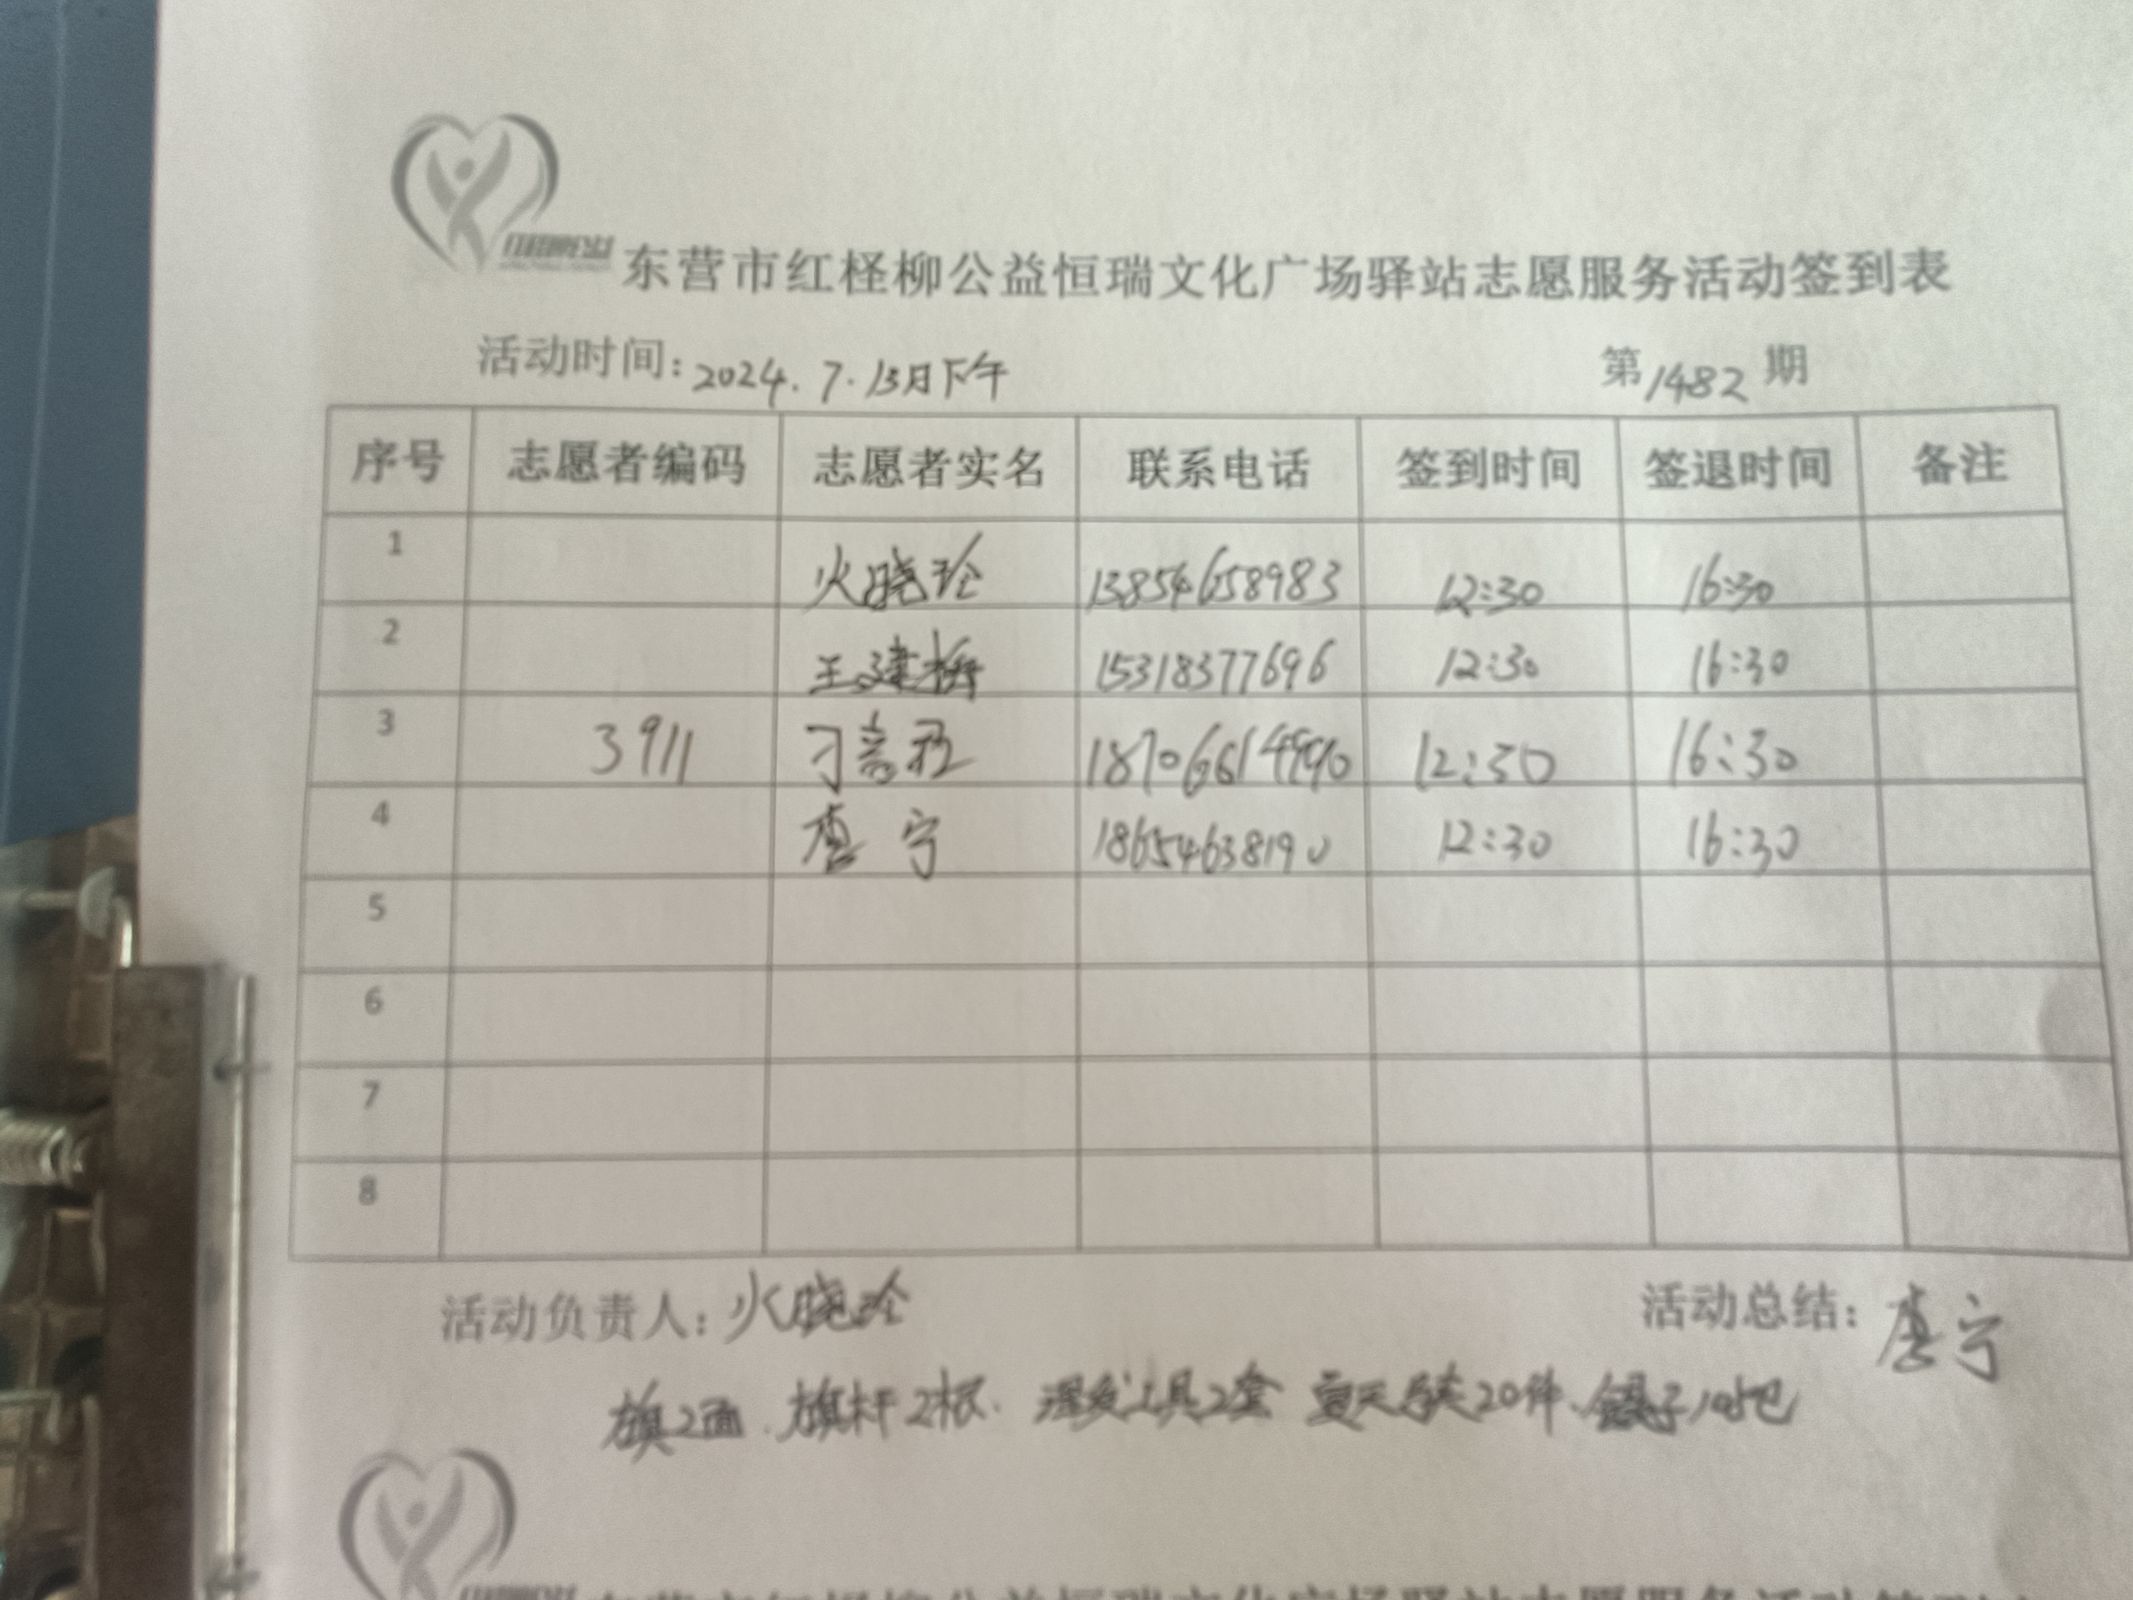 东营市红柽柳公益恒瑞文化广场驿站志愿服务活动签到表
活动时间：2024.7.13日下午 第1482期
序号 志愿者编码 志愿者实名 联系电话 签到时间 签退时间 备注
1 火晓玲 13854658983 12:30 16:30
2 王建梅 15318377696 12:30 16:30
3 3911 刁 12:30 16:30
4 宁 18654638190 12:30 16:30
5
6
7
8
活动负责人：火晓玲 活动总结：宁
旗2面、旗杆2根、理发工具2套 夏天马夹20件、镊子10把